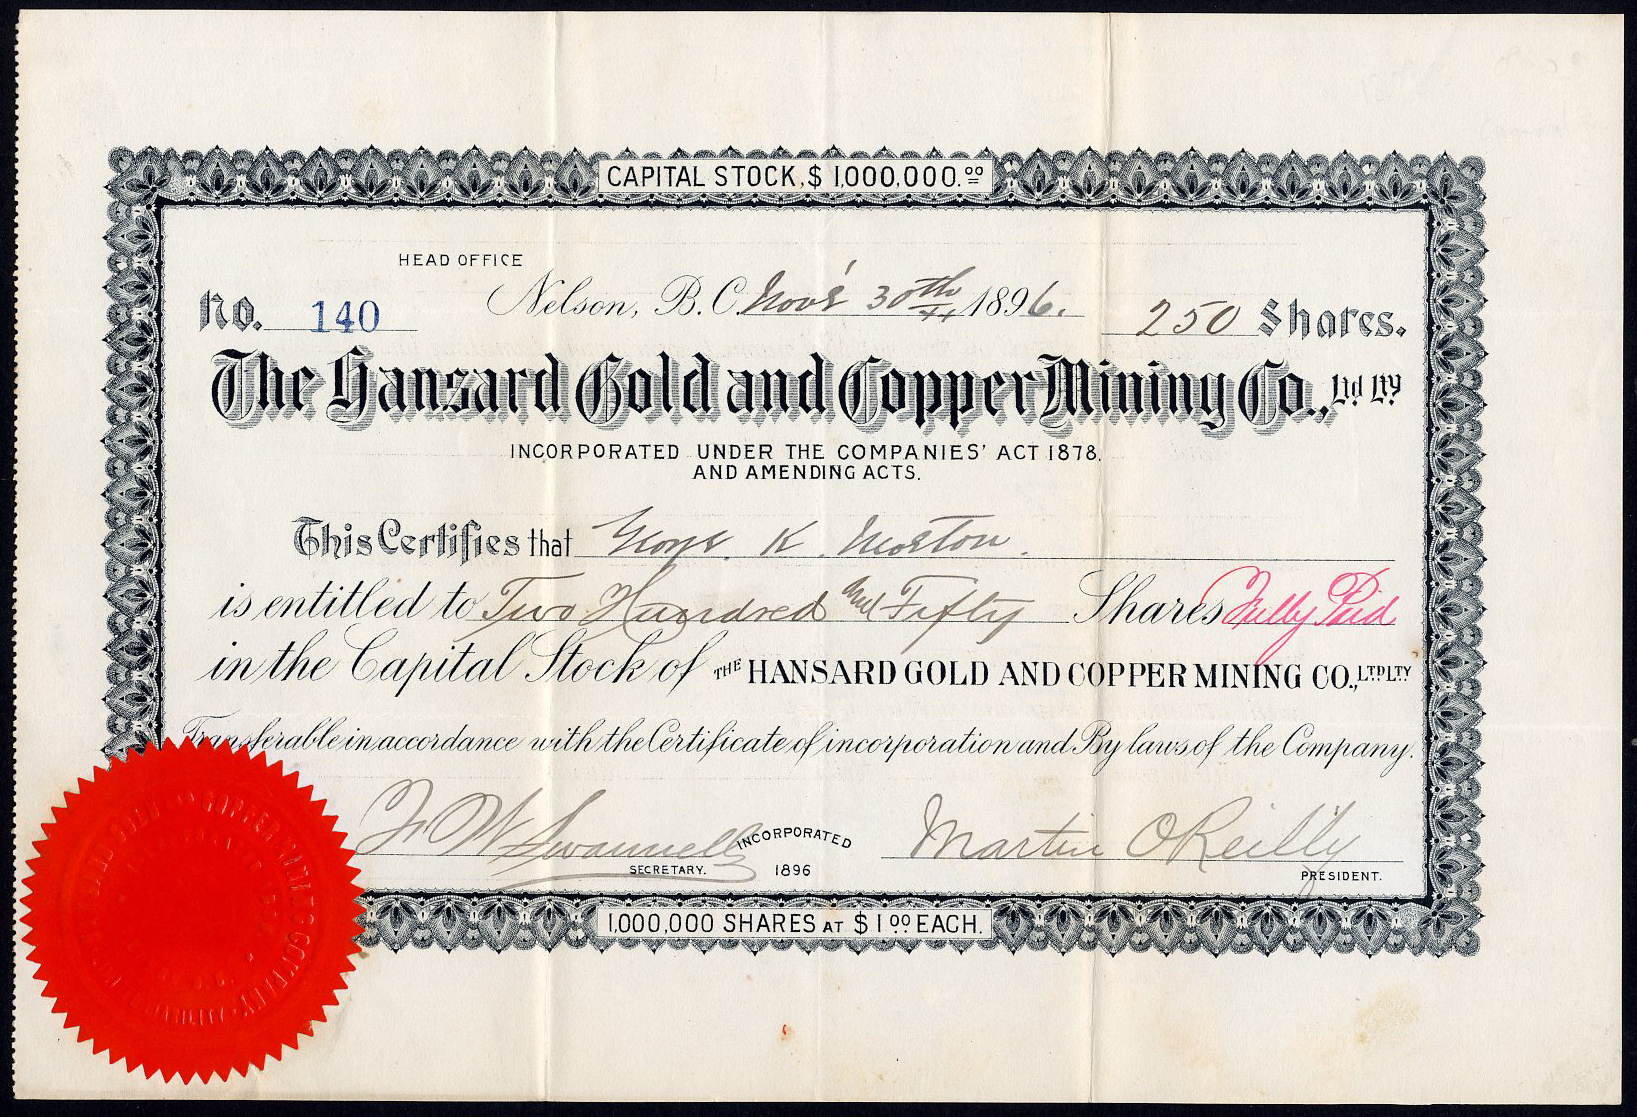 CAPITAL STOCK, $ 1,000,000.00
HEAD OFFICE
Nelson, B.C. Nov'r 30th 1896.
No. 140
250 Shares.
The Hansard Gold and Copper Mining Co., Ld Lty
INCORPORATED UNDER THE COMPANIES' ACT 1878.
AND AMENDING ACTS.
This Certifies that George K. Morton.
is entitled to Two Hundred and Fifty Shares Fully Paid
in the Capital Stock of THE HANSARD GOLD AND COPPER MINING CO., LTD LTY
Transferable in accordance with the Certificate of incorporation and By laws of the Company.
Swannell
SECRETARY.
INCORPORATED
1896
Martin OReilly
PRESIDENT.
1,000,000 SHARES AT $1.00 EACH.